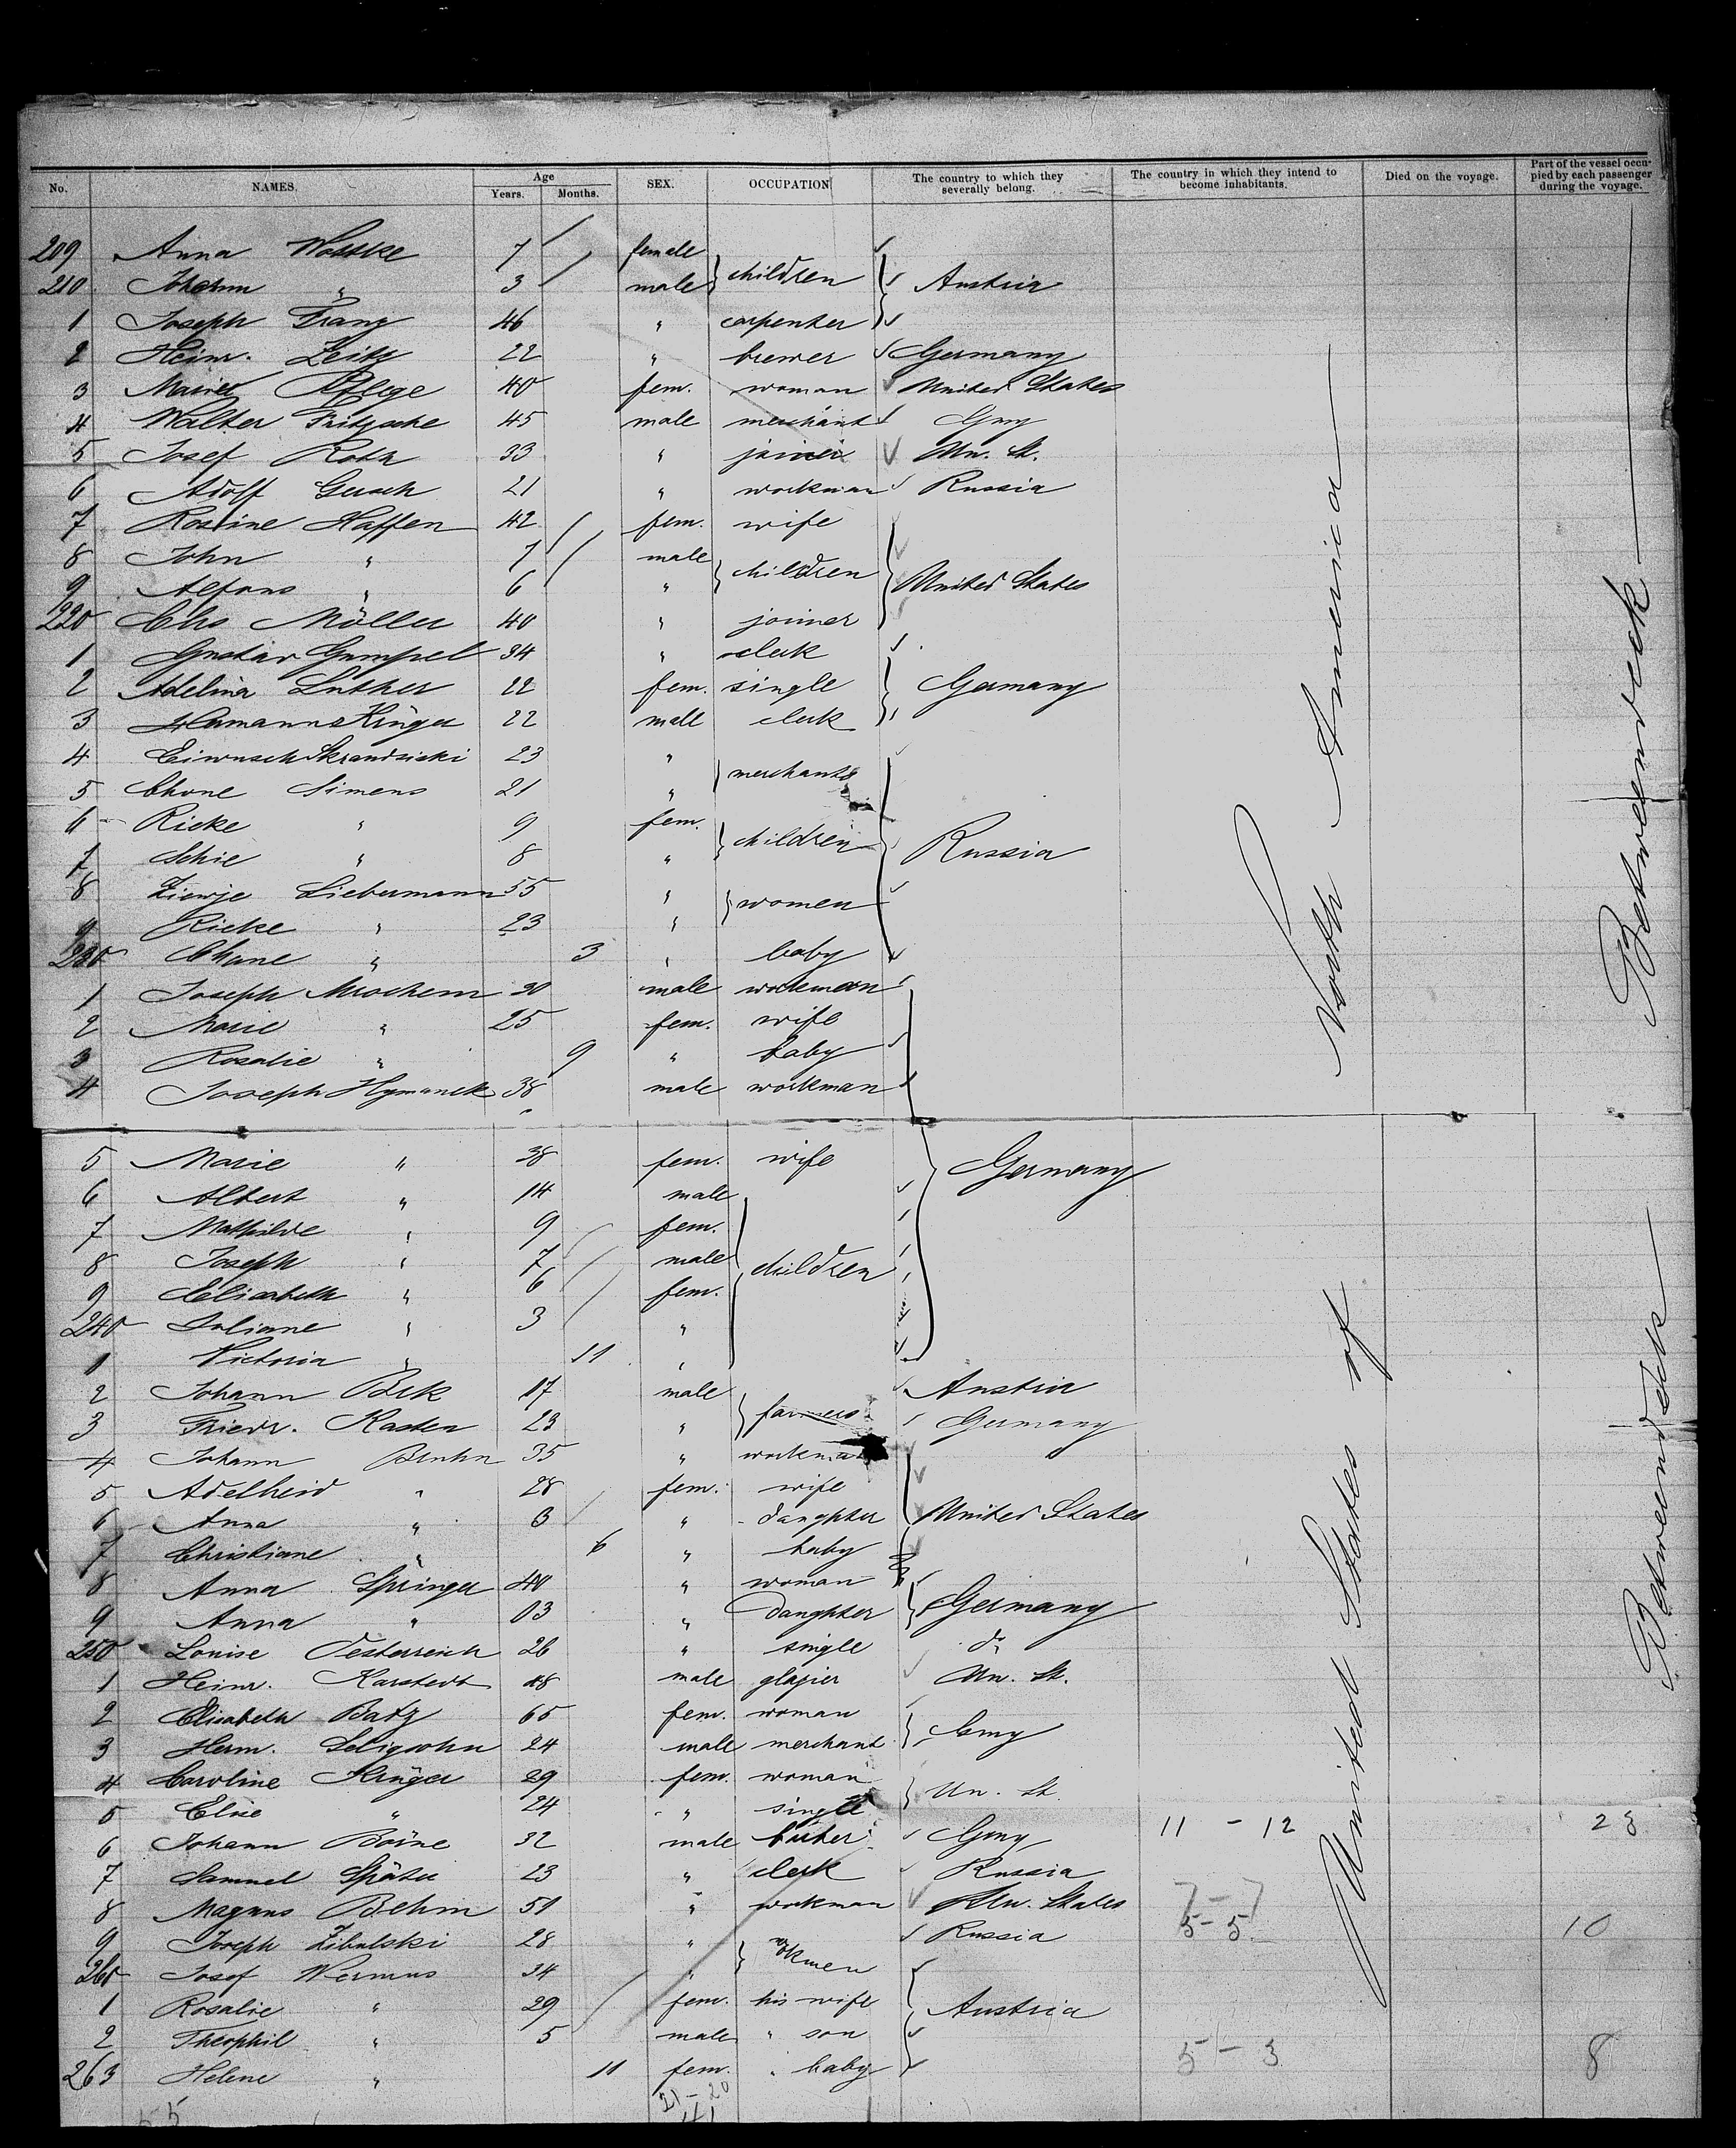 No. NAMES. Age Years. Months. SEX. OCCUPATION The country to which they severally belong. The country in which they intend to become inhabitants. Died on the voyage. Part of the vessel occupied by each passenger during the voyage.
209 Anna 7 female
210 Johann " 3 male children Austria
1 Joseph Franz 46 " carpenter
2 Heinr. Zeitz 22 " brewer Germany
3 40 fem. woman United States
4 Walter Fritzsche 45 male merchant Gmy
5 Josef Roth 33 " joiner Un. St.
6 Adolf Gersch 21 " workman Russia
7 Rosine Haffen 42 fem. wife
8 John " 7 male
9 Alfons " 6 " children United States
220 Chs Möller 40 " joiner
1 Gustav Gumpel 34 " clerk
2 Adelina Luther 22 fem. single Germany
3 Hermann Krüger 22 male clerk
4 23 "
5 Chone Simens 21 " merchants
6 Rieke " 9 fem.
7 Schie " 8 " children Russia
8 Liebermann 55 "
9 Rieke " 23 " women
230 Chane " 3 " baby
1 Joseph Mrochem 30 male workman
2 Marie " 25 fem. wife
3 Rosalie " 9 " baby
4 Joseph Hymanek 38 male workman
5 Marie " 38 fem. wife Germany
6 Albert " 14 male
7 Mathilde " 9 fem.
8 Joseph " 7 male
9 Elisabeth " 6 fem. children
240 Juliane " 3 "
1 Victoria " 11 "
2 Johann Bek 17 male Austria
3 Friedr. Kasten 23 " farmers Germany
4 Johann Bruhn 35 " workman
5 Adelheid " 28 fem. wife
6 Anna " 3 " daughter United States
7 Christiane " 6 " baby
8 Anna Springer 40 " woman
9 Anna " 03 " daughter Germany
250 Louise Oesterreich 26 " single do
1 Heinr. Karstedt 48 male glazier Un. St.
2 Elisabeth Batz 65 fem. woman
3 Herm. Seligsohn 24 male merchant Gmy
4 Caroline Krüger 29 fem. woman
5 Elise " 24 " single Un. St.
6 Johann 32 male Gmy 11 - 12 28
7 Samuel Später 23 " clerk Russia
8 Magnus Behm 51 " workman Un. States 7-7
9 Joseph Zibulski 28 " Russia 5-5 10
260 Josef Wermus 34 " workmen
1 Rosalie " 29 fem. his wife Austria
2 Theophil " 5 male " son
263 Helene " 11 fem. " baby 5 - 3 8
21-20
41
55
United States of North America
Betweendeck
Betweendeck